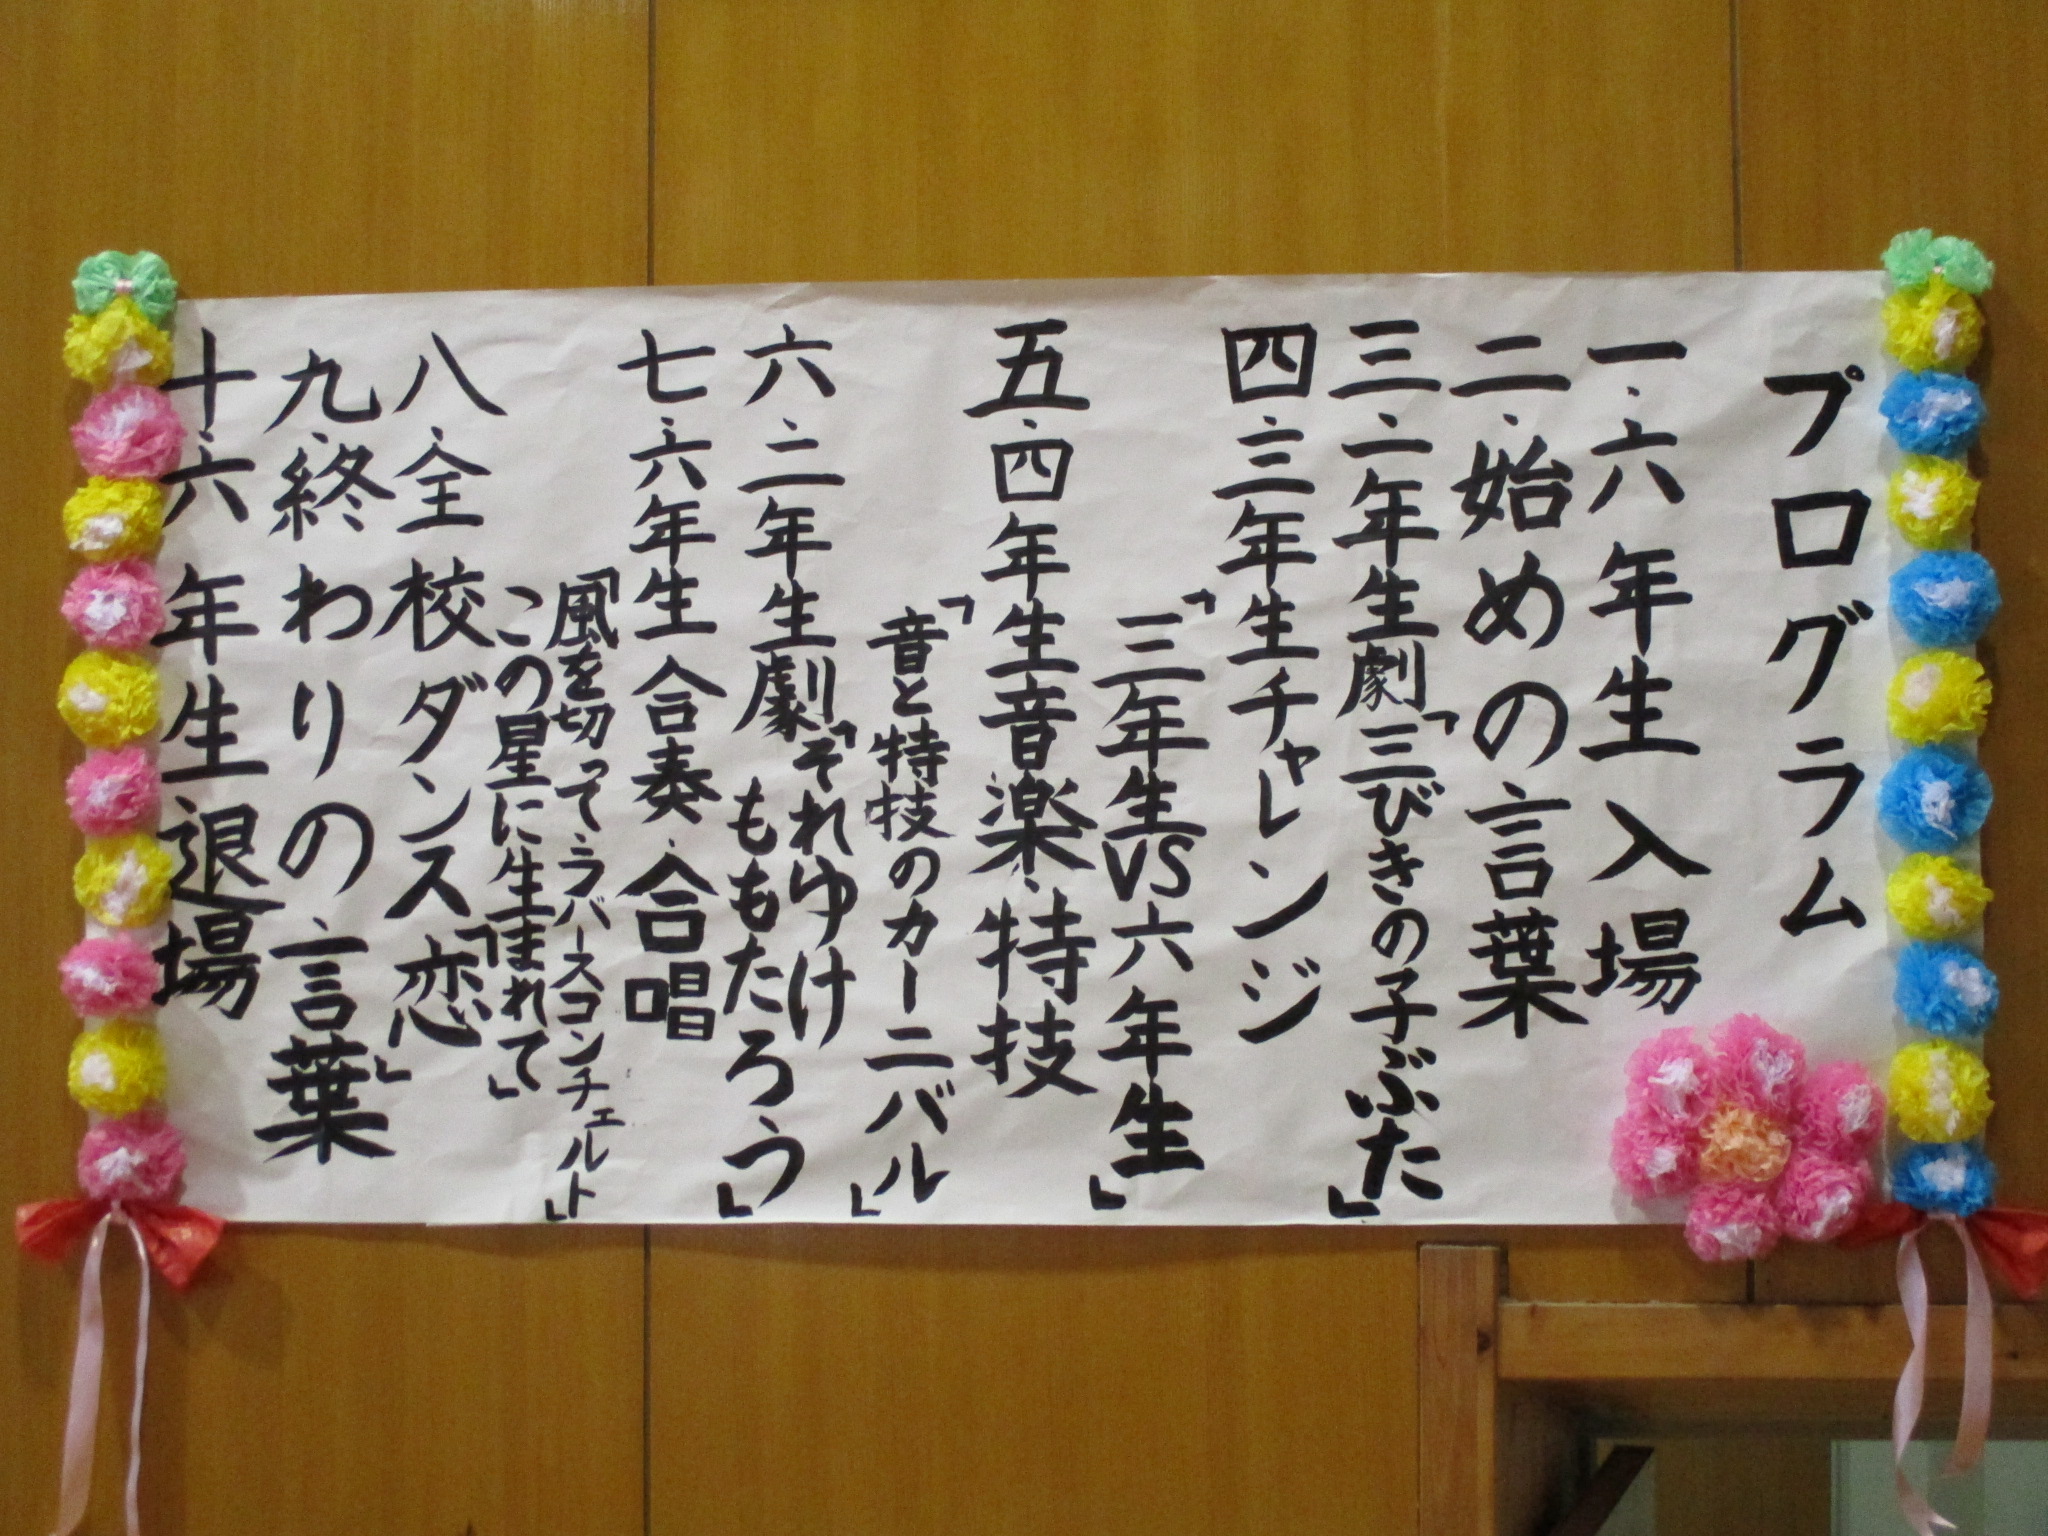 プログラム
一.六年生入場
二.始めの言葉
三.二年生劇「三びきの子ぶた」
四.三年生チャレンジ
「三年生VS六年生」
五.四年生音楽・特技
「音と特技のカーニバル」
六.二年生劇「それゆけ
ももたろう」
七.六年生合奏・合唱
「風を切って・ラバースコンチェルト」
「この星に生まれて」
八.全校ダンス「恋」
九.終わりの言葉
十.六年生退場